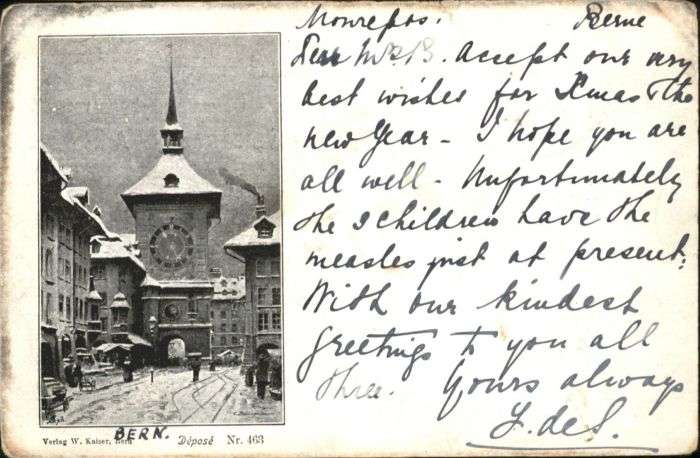 Monrepos. Berne
Dear Mrs B. Accept our very
best wishes for Xmas & the
new Year - I hope you are
all well - Unfortunately
the 2 children have the
measles just at present;
With our kindest
greetings to you all
three. Yours always
J. de S.
Verlag W. Kaiser, Bern
BERN.
Déposé Nr. 463